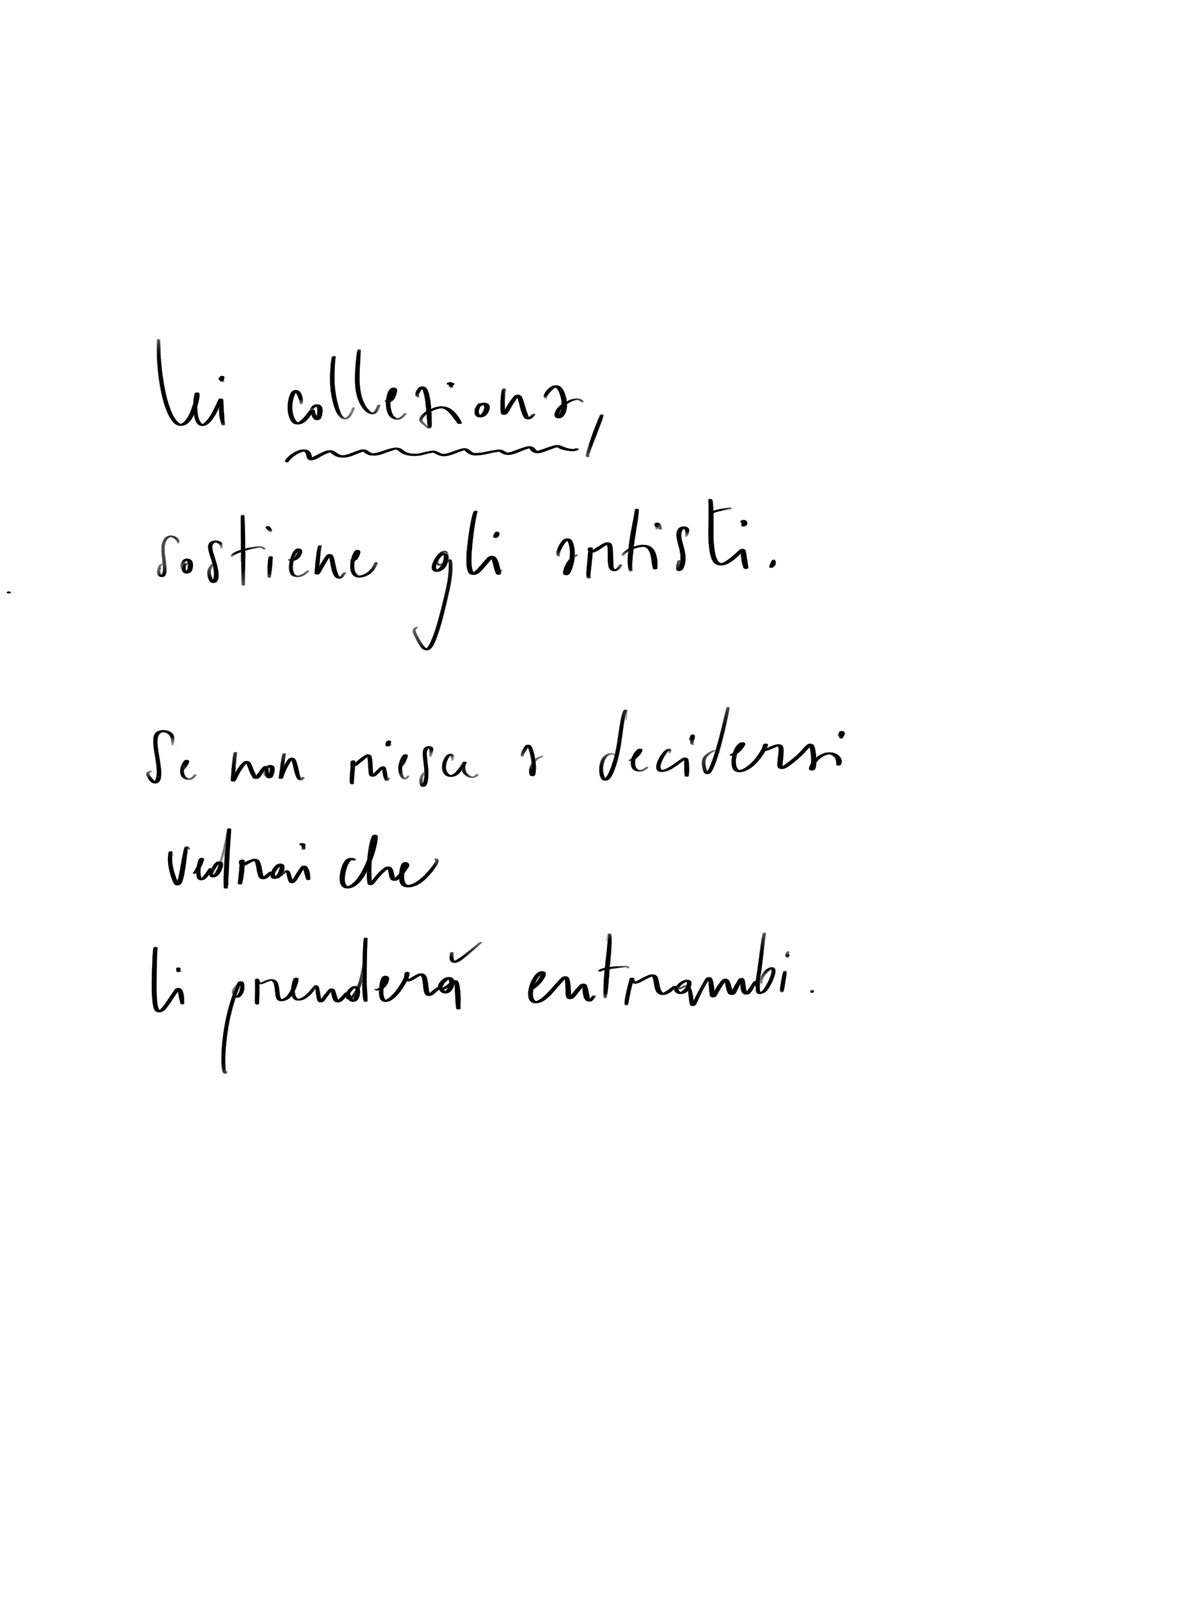 lui colleziona,
sostiene gli artisti.
Se non riesce a decidersi
vedrai che
li prenderà entrambi.